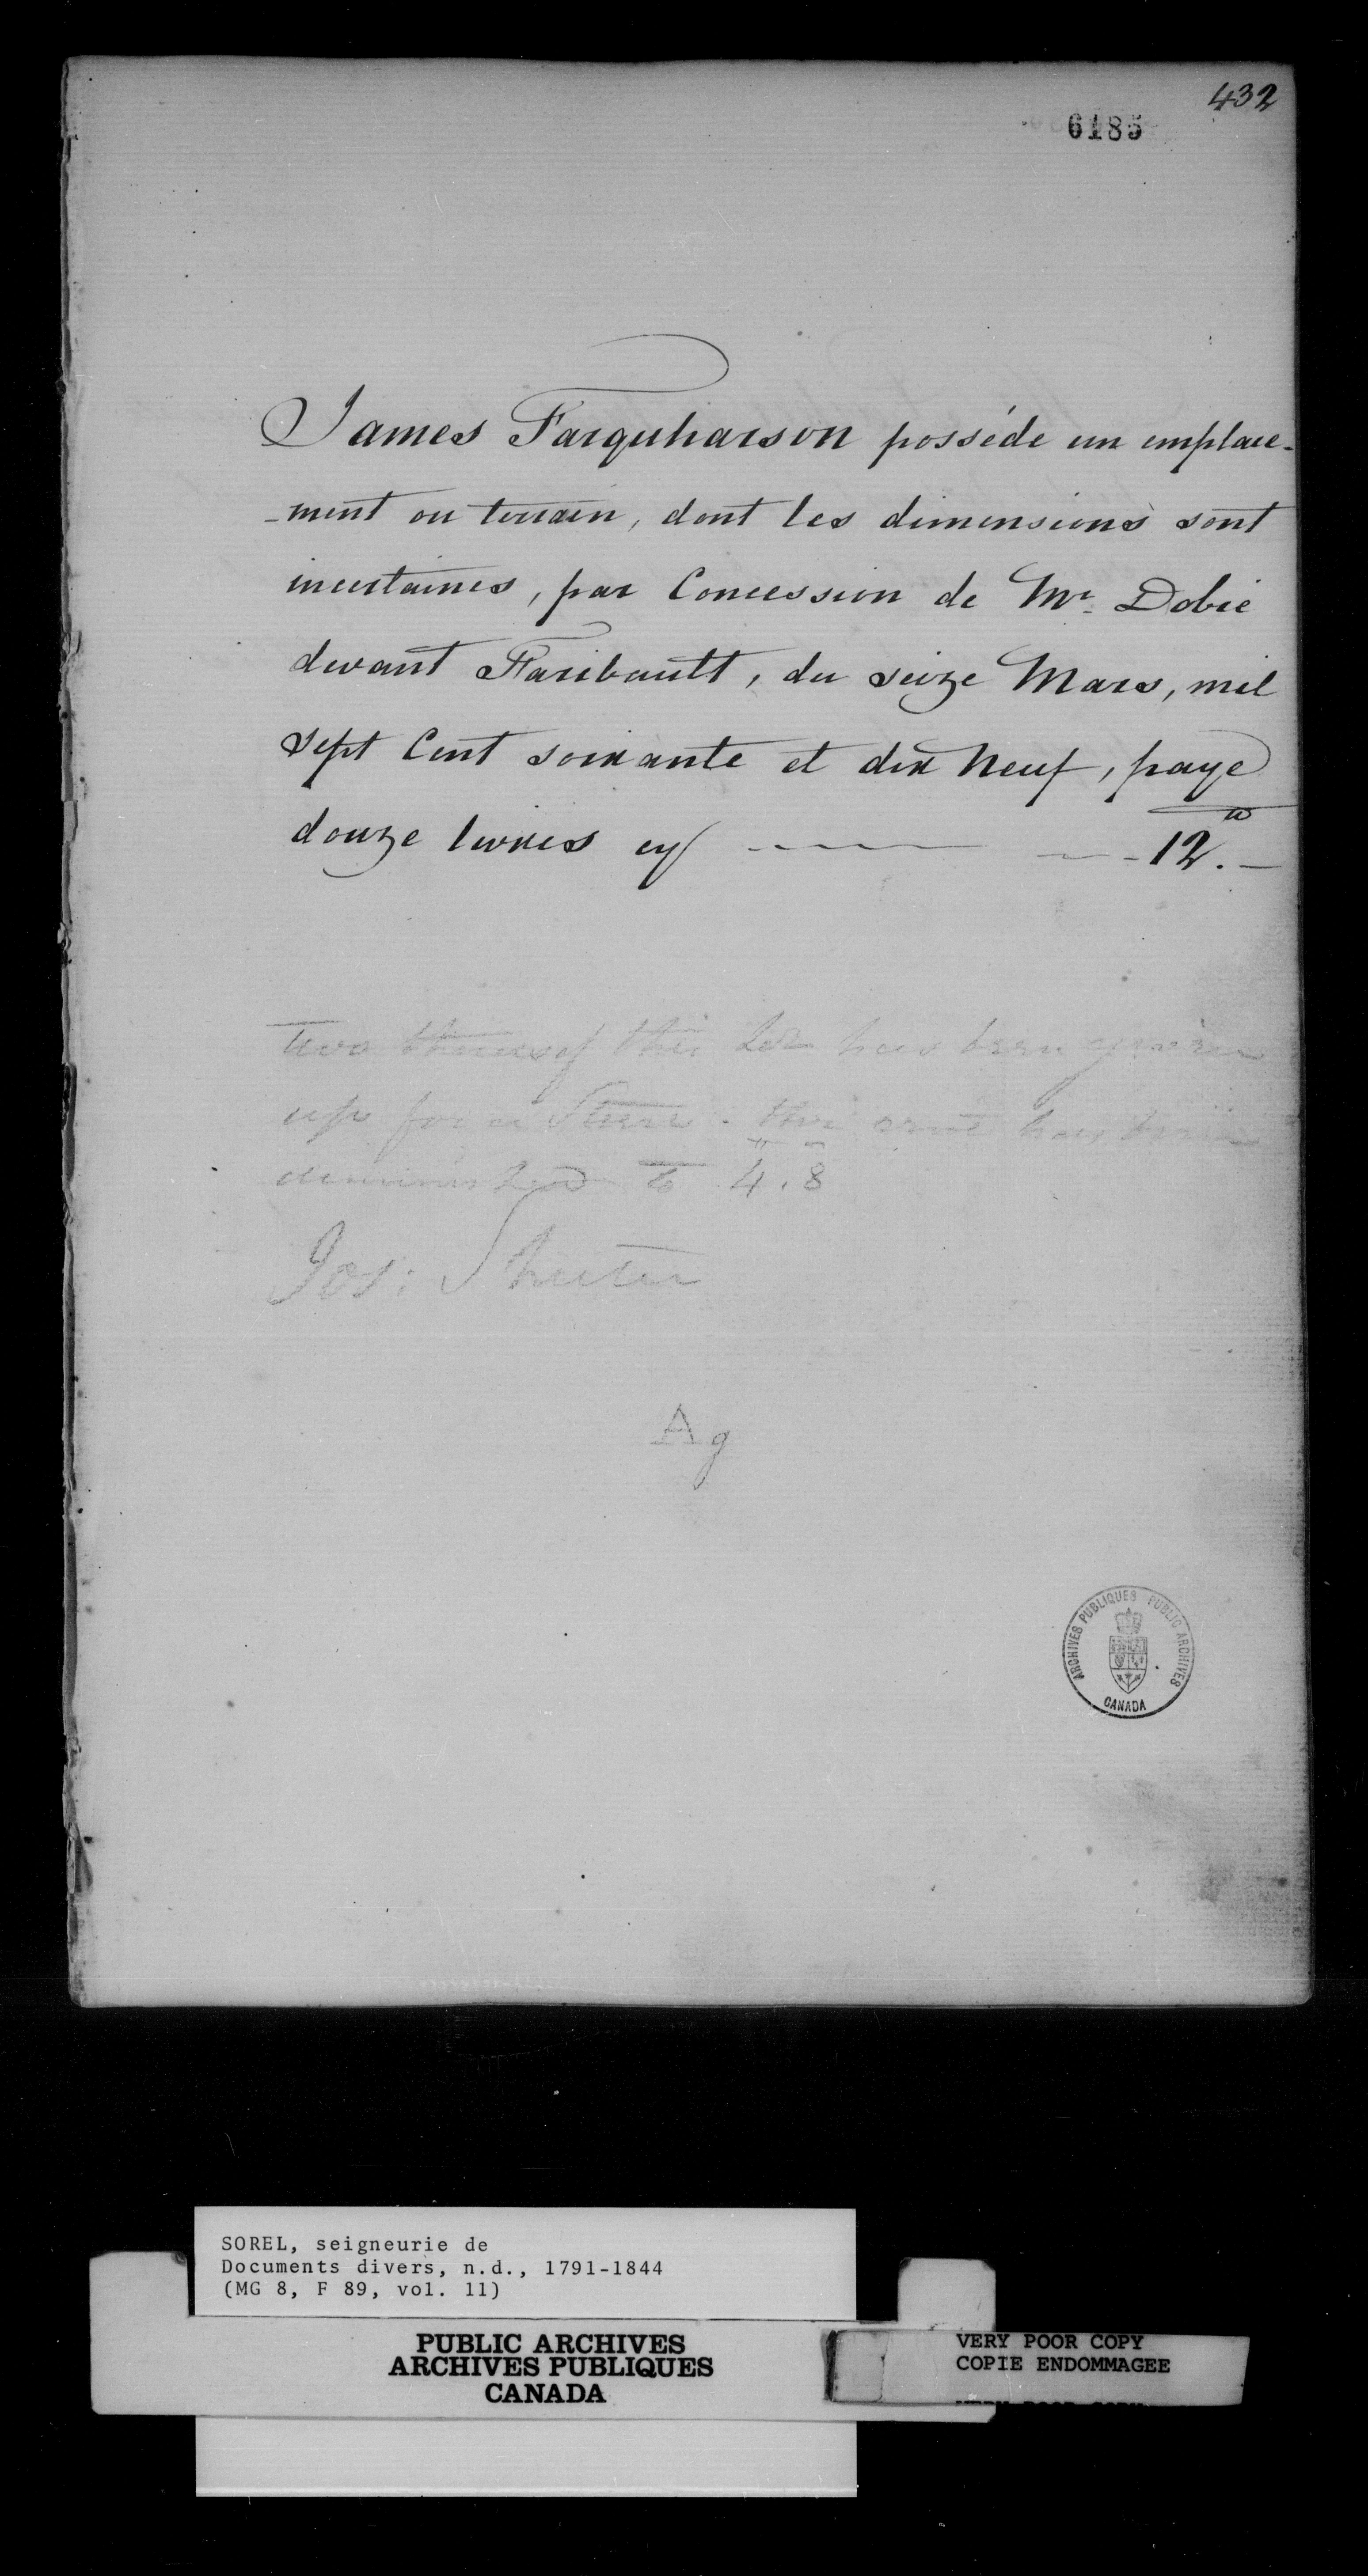 432
6185
James Farquharson posséde un emplace-
-ment ou terrain, dont les dimensions sont
incertaines, par Concession de Mr. Dobie
devant Faribault, du seize Mars, mil
sept Cent soixante et dix neuf, paye
douze livres cy 12. -
Two this Lot has been given
up for a the rent has been
diminished to 4.8
Jos: Shuter
Ag
ARCHIVES PUBLIQUES PUBLIC ARCHIVES
CANADA
SOREL, seigneurie de
Documents divers, n.d., 1791-1844
(MG 8, F 89, vol. 11)
PUBLIC ARCHIVES
ARCHIVES PUBLIQUES
CANADA
VERY POOR COPY
COPIE ENDOMMAGEE
VERY POOR COPY